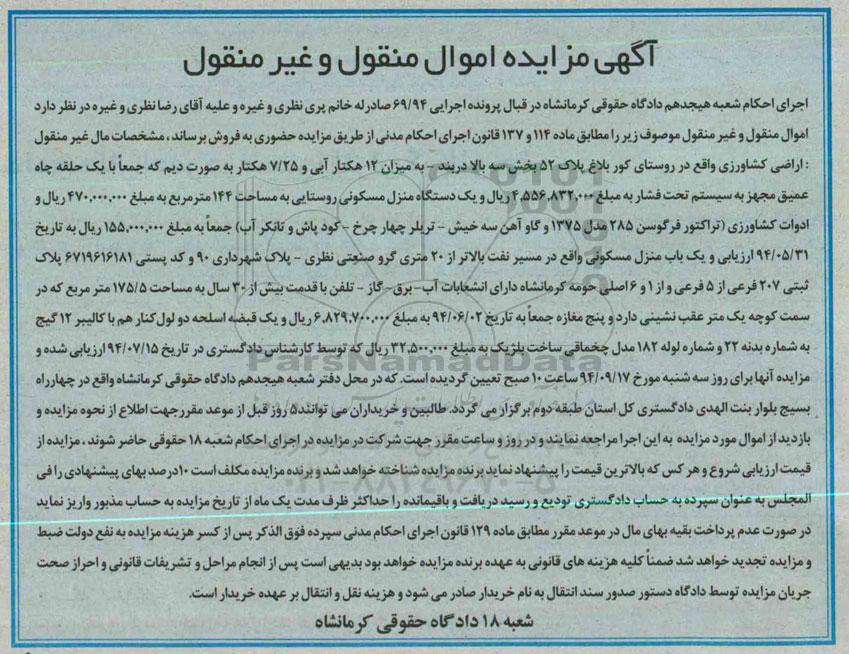 آگهی مزایده اموال منقول و غیر منقول
اجرای احکام شعبه هیجدهم دادگاه حقوقی کرمانشاه در قبال پرونده اجرایی ۶۹/۹۴ صادرله خانم پری نظری و غیره و علیه آقای رضا نظری و غیره در نظر دارد
اموال منقول و غیر منقول موصوف زیر را مطابق ماده ۱۱۴ و ۱۳۷ قانون اجرای احکام مدنی از طریق مزایده حضوری به فروش برساند ، مشخصات مال غیر منقول
: اراضی کشاورزی واقع در روستای کور بلاغ پلاک ۵۲ بخش سه بالا دربند - به میزان ۱۲ هکتار آبی و ۷/۲۵ هکتار به صورت دیم که جمعاً با یک حلقه چاه
عمیق مجهز به سیستم تحت فشار به مبلغ ۴,۵۵۶,۸۳۲,۰۰۰ ریال و یک دستگاه منزل مسکونی روستایی به مساحت ۱۴۴ مترمربع به مبلغ ۴۷۰,۰۰۰,۰۰۰ ریال و
ادوات کشاورزی (تراکتور فرگوسن ۲۸۵ مدل ۱۳۷۵ و گاو آهن سه خیش - تریلر چهار چرخ - کود پاش و تانکر آب) جمعاً به مبلغ ۱۵۵,۰۰۰,۰۰۰ ریال به تاریخ
۹۴/۰۵/۳۱ ارزیابی و یک باب منزل مسکونی واقع در مسیر نفت بالاتر از ۲۰ متری گرو صنعتی نظری - پلاک شهرداری ۹۰ و کد پستی ۶۷۱۹۶۱۶۱۸۱ پلاک
ثبتی ۲۰۷ فرعی از ۵ فرعی و از ۱ و ۶ اصلی حومه کرمانشاه دارای انشعابات آب- برق- گاز - تلفن با قدمت بیش از ۳۰ سال به مساحت ۱۷۵/۵ متر مربع که در
سمت کوچه یک متر عقب نشینی دارد و پنج مغازه جمعاً به تاریخ ۹۴/۰۶/۰۲ به مبلغ ۶,۸۲۹,۷۰۰,۰۰۰ ریال و یک قبضه اسلحه دو لول کنار هم با کالیبر ۱۲ گیج
به شماره بدنه ۲۲ و شماره لوله ۱۸۲ مدل چخماقی ساخت بلژیک به مبلغ ۳۲,۵۰۰,۰۰۰ ریال که توسط کارشناس دادگستری در تاریخ ۹۴/۰۷/۱۵ ارزیابی شده و
مزایده آنها برای روز سه شنبه مورخ ۹۴/۰۹/۱۷ ساعت ۱۰ صبح تعیین گردیده است. که در محل دفتر شعبه هیجدهم دادگاه حقوقی کرمانشاه واقع در چهارراه
بسیج بلوار بنت الهدی دادگستری کل استان طبقه دوم برگزار می گردد. طالبین و خریداران می توانند ۵ روز قبل از موعد مقرر جهت اطلاع از نحوه مزایده و
بازدید از اموال مورد مزایده به این اجرا مراجعه نمایند و در روز و ساعت مقرر جهت شرکت در مزایده در اجرای احکام شعبه ۱۸ حقوقی حاضر شوند ، مزایده از
قیمت ارزیابی شروع و هر کس که بالاترین قیمت را پیشنهاد نماید برنده مزایده شناخته خواهد شد و برنده مزایده مکلف است ۱۰درصد بهای پیشنهادی را فی
المجلس به عنوان سپرده به حساب دادگستری تودیع و رسید دریافت و باقیمانده را حداکثر ظرف مدت یک ماه از تاریخ مزایده به حساب مذبور واریز نماید
در صورت عدم پرداخت بقیه بهای مال در موعد مقرر مطابق ماده ۱۲۹ قانون اجرای احکام مدنی سپرده فوق الذکر پس از کسر هزینه مزایده به نفع دولت ضبط
و مزایده تجدید خواهد شد ضمناً کلیه هزینه های قانونی به عهده برنده مزایده خواهد بود بدیهی است پس از انجام مراحل و تشریفات قانونی و احراز صحت
جریان مزایده توسط دادگاه دستور صدور سند انتقال به نام خریدار صادر می شود و هزینه نقل و انتقال بر عهده خریدار است.
شعبه ۱۸ دادگاه حقوقی کرمانشاه
ParsNamadData
۰۲۱-۸۸۳۴۹۶۷۰-۵